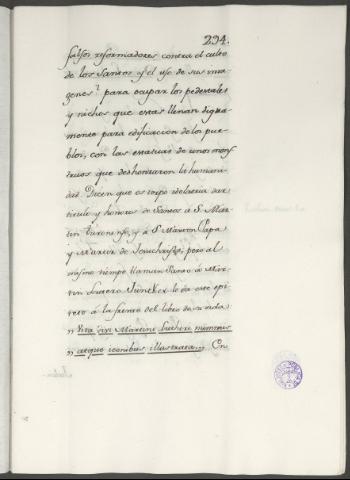 294.
falsos reformadores contra el culto
de los Santos y el uso de sus ima
genes? para ocupar los pedestales
y nichos que estas llenan digna-
mente para edificacion de los pue-
blos, con las estatuas de unos mons-
truos que deshonraron la humani-
dad. Dicen que es torpe idolatria dar
titulo y honores de Santos à S. Mar-
tin Turonense, y à S. Martin Papa
y Martir de Jesuchristo, pero al
mismo tiempo llaman Santo à Mar-
tin Lutero. Juncker le da este epi-
teto à la frente del libro de su vida
„ Vita Divi Martini Lutheri nummis
„ atque iconibus illustrata. „ En